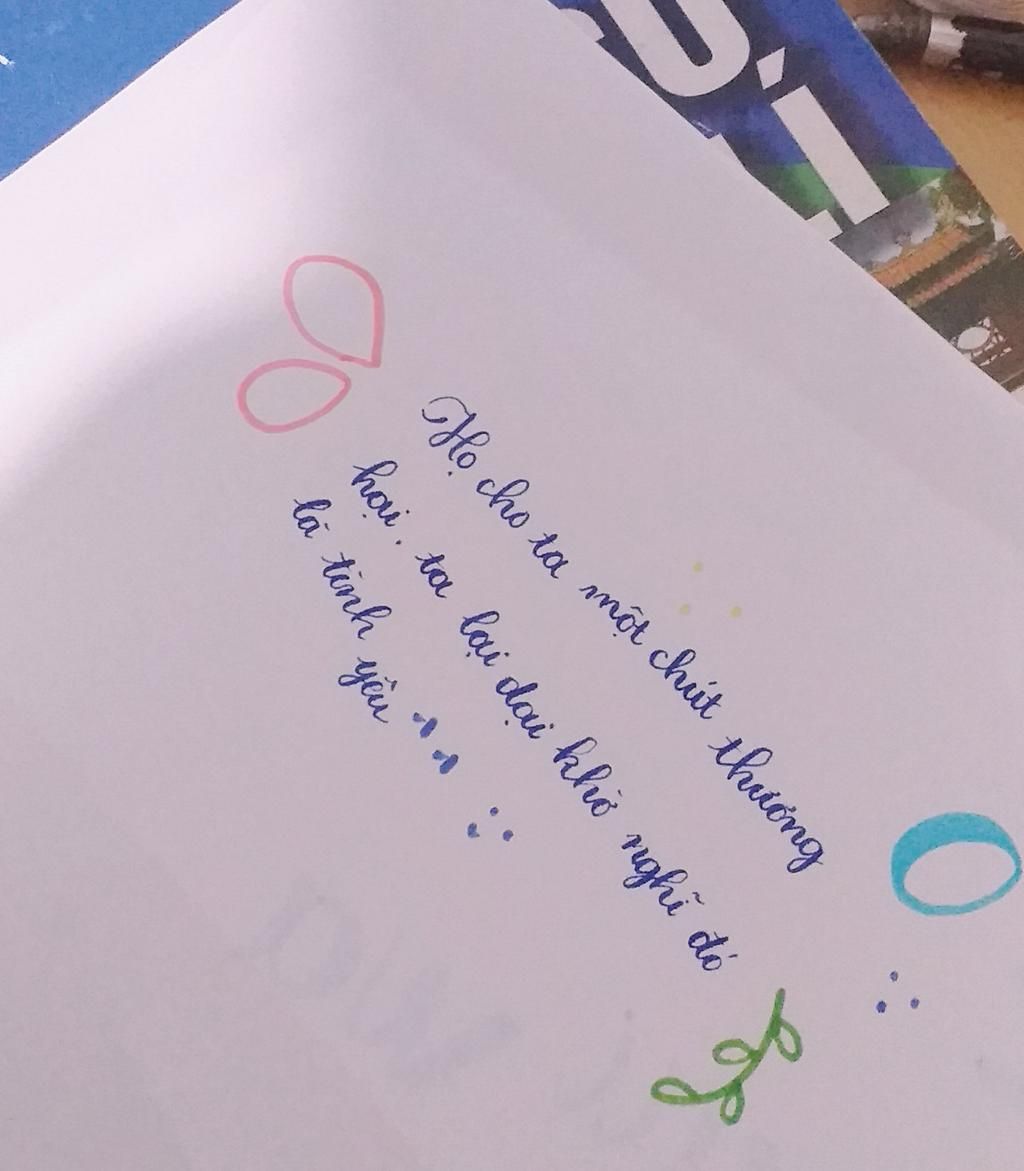 Họ cho ta một chút thương
hại, ta lại dại khờ nghĩ đó
là tình yêu